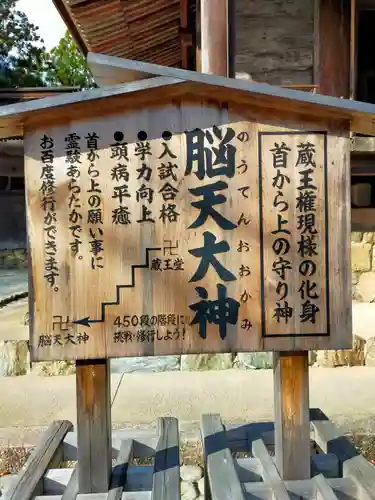 蔵王権現様の化身
首から上の守り神
脳天大神
のうてんおおかみ
●入試合格
●学力向上
●頭病平癒
首から上の願い事に
霊験あらたかです。
お百度修行ができます。
卍
蔵王堂
450段の階段に
挑戦・修行しよう!
卍
脳天大神